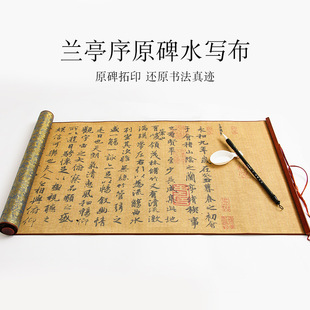 兰亭序原碑水写布
原碑拓印 还原书法真迹
永和九年歲在癸丑暮春之初會
于會稽山陰之蘭亭脩稧事
也羣賢畢至少長咸集此地
有峻領茂林脩竹又有清流激
湍暎帶左右引以為流觴曲水
列坐其次雖無絲竹管弦之
盛一觴一詠亦足以暢叙幽情
是日也天朗氣清惠風和暢仰
觀宇宙之大俯察品類之盛
所以遊目騁懷足以極視聽之
娛信可樂也夫人之相與俯仰